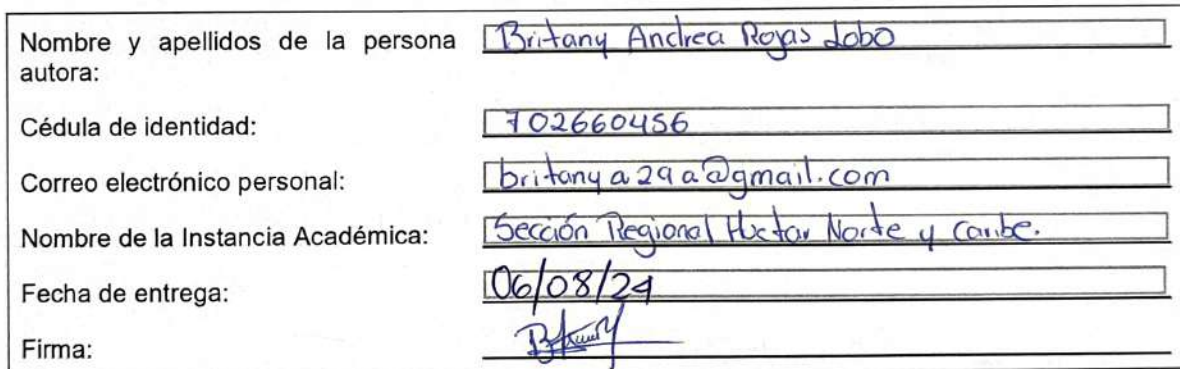 Nombre y apellidos de la persona autora: Britany Andrea Rojas Lobo
Cédula de identidad: 702660456
Correo electrónico personal: britanya29a@gmail.com
Nombre de la Instancia Académica: Sección Regional Huetar Norte y Caribe.
Fecha de entrega: 06/08/24
Firma: